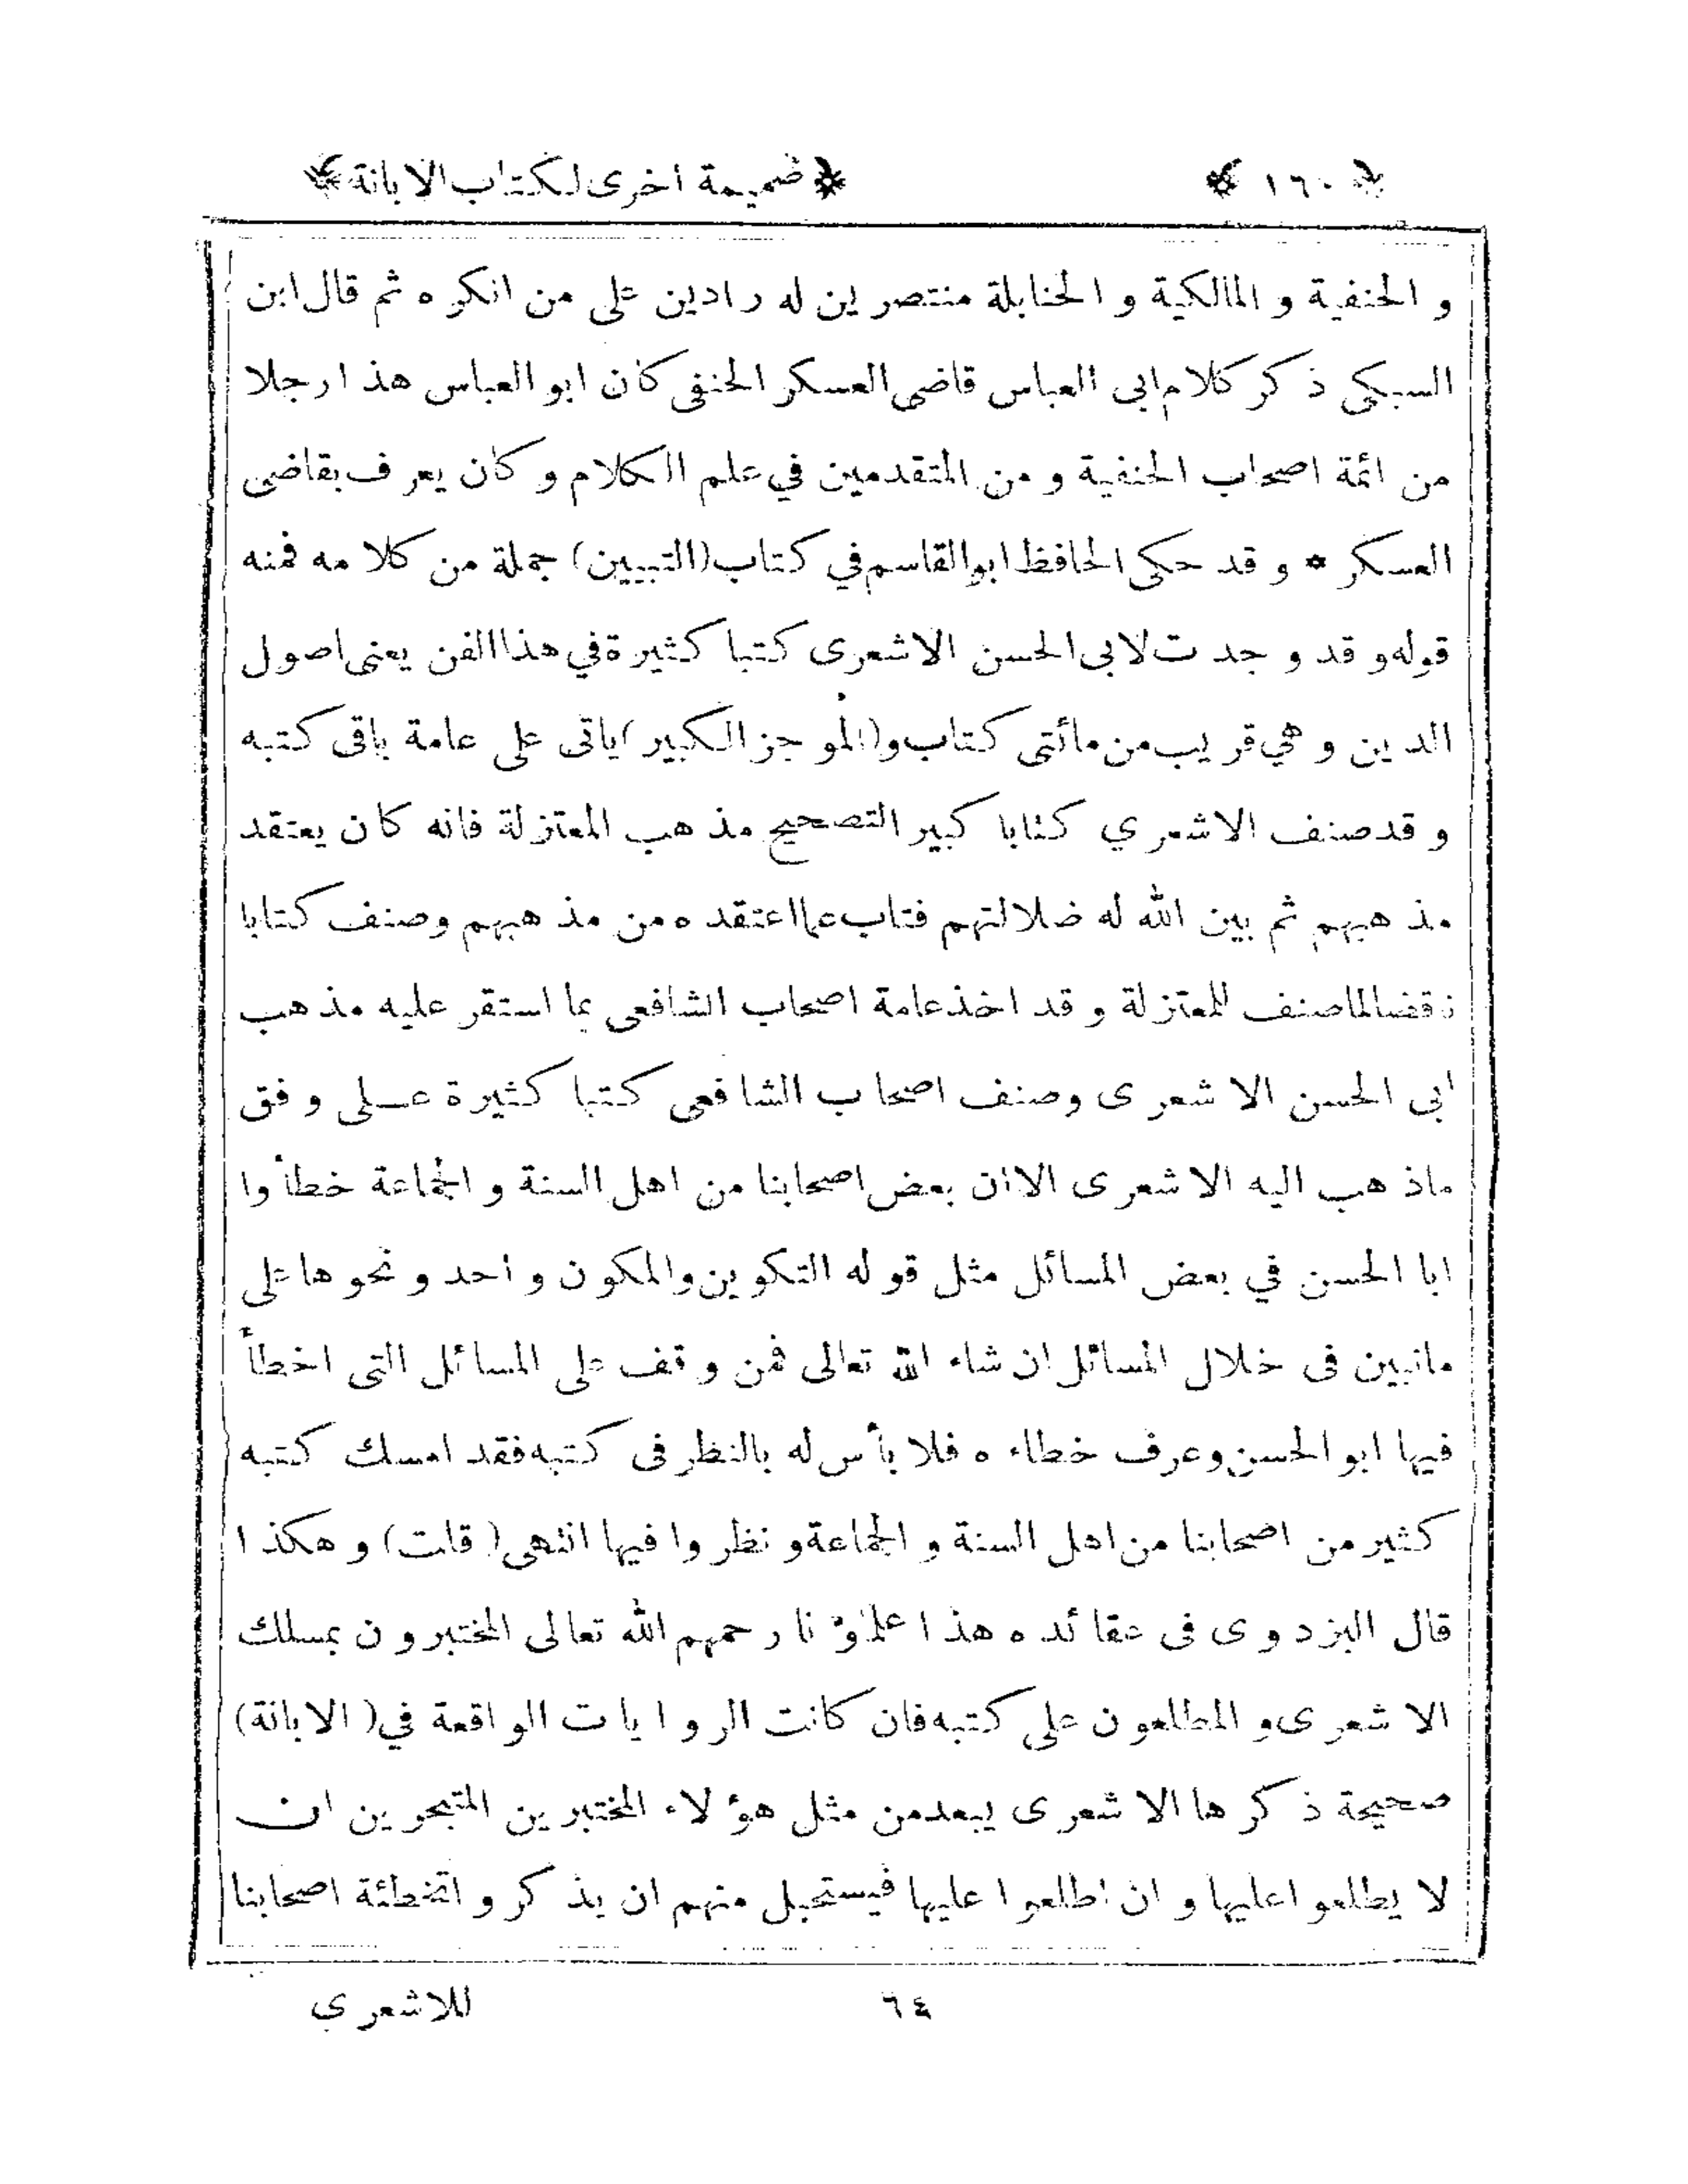 ﴿ ١٦٠ ﴾ ﴿ ضميمة اخرى لكتاب الابانة ﴾
و الحنفية و المالكية و الحنابلة منتصرين له رادين على من انكره ثم قال ابن
السبكى ذكر كلام ابى العباس قاضى العسكر الحنفى كان ابو العباس هذا رجلا
من ائمة اصحاب الحنفية و من المتقدمين في علم الكلام و كان يعرف بقاضى
العسكر * و قد حكى الحافظ ابو القاسم في كتاب (التبيين) جملة من كلامه فمنه
قوله و قد وجدت لابى الحسن الاشعرى كتبا كثيرة في هذا الفن يعنى اصول
الدين و هي قريب من مائتى كتاب و (الموجز الكبير) ياتى على عامة باقى كتبه
و قد صنف الاشعري كتابا كبيرا لتصحيح مذهب المعتزلة فانه كان يعتقد
مذهبهم ثم بين الله له ضلالتهم فتاب عما اعتقده من مذهبهم وصنف كتابا
نقضا لما صنف للمعتزلة و قد اخذ عامة اصحاب الشافعى بما استقر عليه مذهب
ابى الحسن الاشعرى وصنف اصحاب الشافعى كتبا كثيرة عـلى وفق
ماذهب اليه الاشعرى الا ان بعض اصحابنا من اهل السنة و الجماعة خطأوا
ابا الحسن في بعض المسائل مثل قوله التكوين والمكون واحد و نحوها على
مانبين فى خلال المسائل ان شاء الله تعالى فمن وقف على المسائل التى اخطأ
فيها ابو الحسن وعرف خطاءه فلا بأس له بالنظر فى كتبه فقد امسك كتبه
كثير من اصحابنا من اهل السنة و الجماعة و نظروا فيها انتهى (قلت) و هكذا
قال البزدوى فى عقائده هذا علماؤنا رحمهم الله تعالى المختبرون بمسلك
الاشعرى و المطلعون على كتبه فان كانت الروايات الواقعة في (الابانة)
صحيحة ذكرها الاشعرى يبعد من مثل هؤلاء المختبرين المتبحرين ان
لا يطلعوا عليها و ان اطلعوا عليها فيستحيل منهم ان يذكروا تخطئة اصحابنا
٦٤ للاشعري